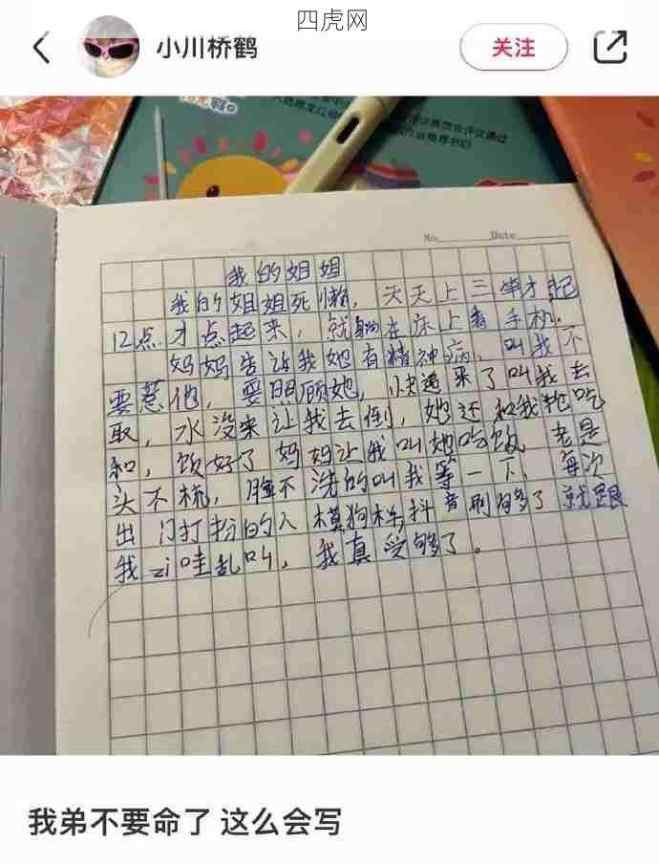 四虎网
小川桥鹤
关注
No. Date
我的姐姐
我的姐姐死懒，天天上三竿才起
12点才点起来，就躺在床上看手机.
妈妈告诉我她有精神病，叫我不
要惹他，要照顾她，快递来了叫我去
取，水没来让我去倒，她还和我抢吃
和，饭好了妈妈让我叫她吃饭，老是
头不梳，脸不洗的叫我等一下，每次
出门打扮的人模狗样抖音刷够了就跟
我zi哇乱叫，我真受够了。
我弟不要命了 这么会写